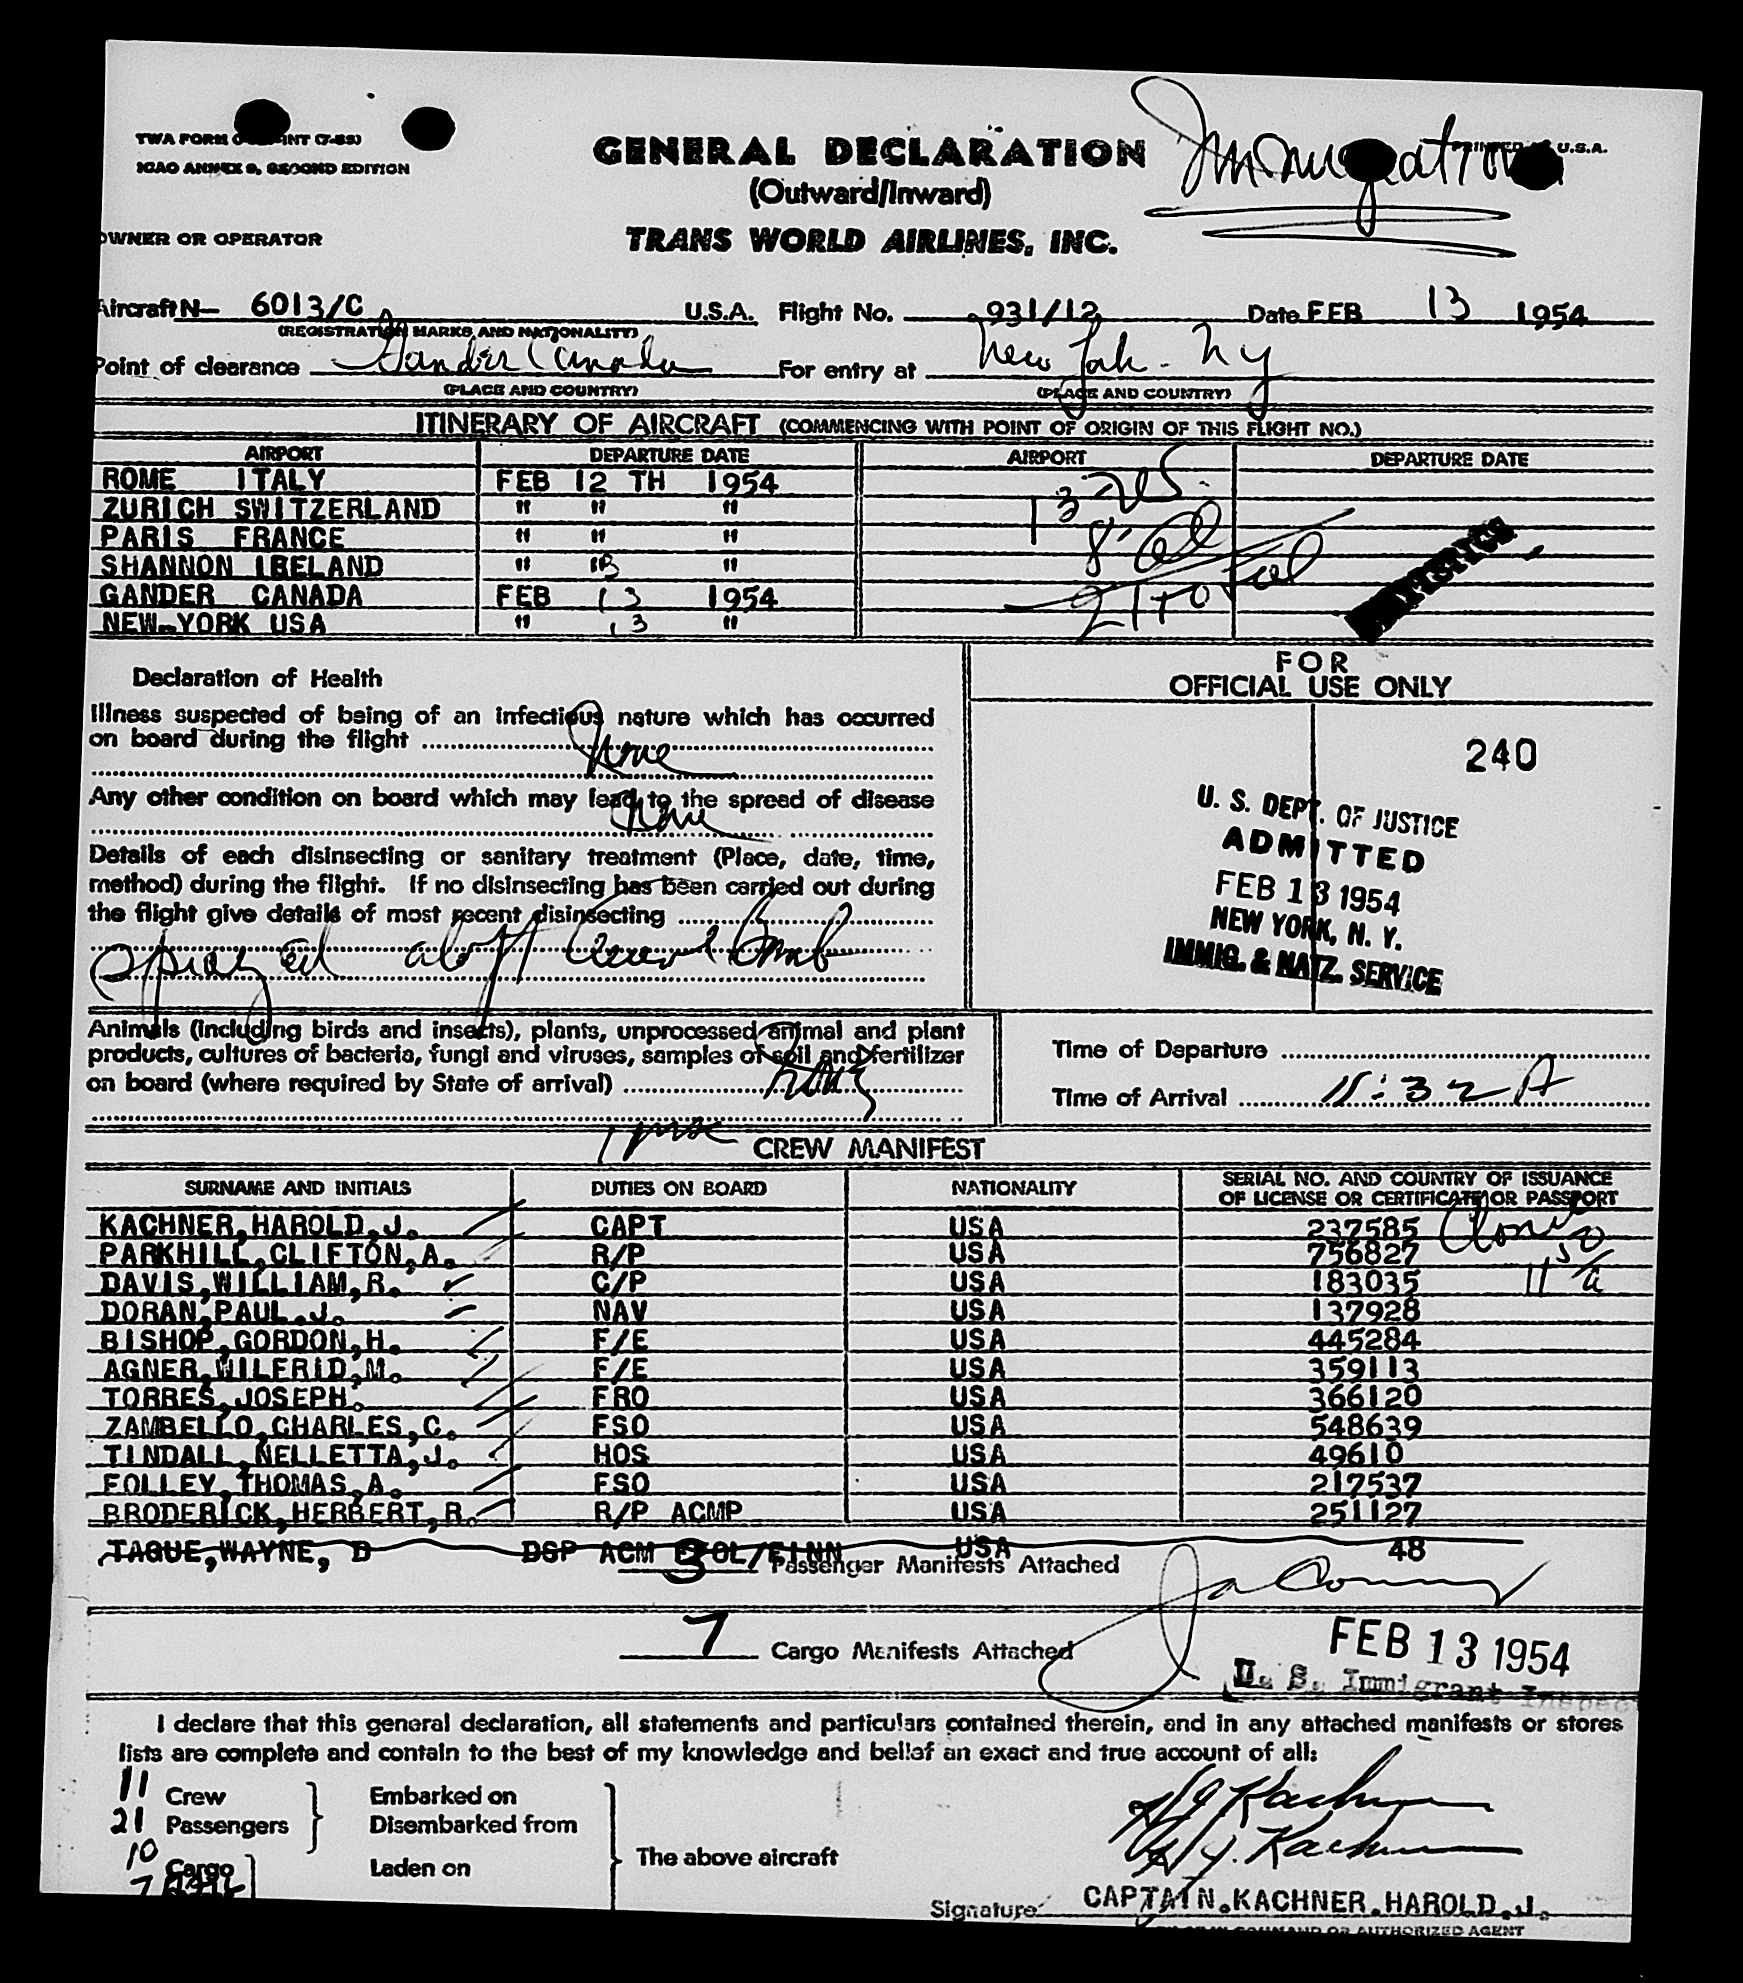 TWA FORM INT (7-53)
ICAO ANNEX 9, SECOND EDITION
GENERAL DECLARATION
(Outward/Inward)
Immigration
PRINTED U.S.A.
OWNER OR OPERATOR
TRANS WORLD AIRLINES, INC.
Aircraft N— 6013/C U.S.A. Flight No. 931/12 Date FEB 13 1954
(REGISTRATION MARKS AND NATIONALITY)
Point of clearance Gander Canada For entry at New York - NY
(PLACE AND COUNTRY) (PLACE AND COUNTRY)
ITINERARY OF AIRCRAFT (COMMENCING WITH POINT OF ORIGIN OF THIS FLIGHT NO.)
AIRPORT DEPARTURE DATE AIRPORT DEPARTURE DATE
ROME ITALY FEB 12 TH 1954
ZURICH SWITZERLAND " " "
PARIS FRANCE " " "
SHANNON IRELAND " 13 "
GANDER CANADA FEB 13 1954
NEW YORK USA " 13 "
13 US.
8
21 total
Declaration of Health
Illness suspected of being of an infectious nature which has occurred
on board during the flight None
Any other condition on board which may lead to the spread of disease
None
Details of each disinsecting or sanitary treatment (Place, date, time,
method) during the flight. If no disinsecting has been carried out during
the flight give details of most recent disinsecting
Sprayed Bomb
FOR
OFFICIAL USE ONLY
240
U. S. DEPT. OF JUSTICE
ADMITTED
FEB 13 1954
NEW YORK, N. Y.
IMMIG. & NATZ. SERVICE
Animals (including birds and insects), plants, unprocessed animal and plant
products, cultures of bacteria, fungi and viruses, samples of soil and fertilizer
on board (where required by State of arrival)
Time of Departure
Time of Arrival 11:32 A
CREW MANIFEST
SURNAME AND INITIALS DUTIES ON BOARD NATIONALITY SERIAL NO. AND COUNTRY OF ISSUANCE
OF LICENSE OR CERTIFICATE OR PASSPORT
KACHNER,HAROLD,J. CAPT USA 237585
PARKHILL,CLIFTON,A. R/P USA 756827
DAVIS,WILLIAM,R. C/P USA 183035
DORAN,PAUL.J. NAV USA 137928
BISHOP,GORDON,H. F/E USA 445284
AGNER,WILFRID,M. F/E USA 359113
TORRES,JOSEPH. FRO USA 366120
ZAMBELLO,CHARLES,C. FSO USA 548639
TINDALL,NELLETTA,J. HOS USA 49610
FOLLEY,THOMAS,A. FSO USA 217537
BRODERICK,HERBERT,R. R/P ACMP USA 251127
TAGUE,WAYNE, D DSP ACM USA 48
3 Passenger Manifests Attached
7 Cargo Manifests Attached
FEB 13 1954
U. S. Immigrant Inspec
I declare that this general declaration, all statements and particulars contained therein, and in any attached manifests or stores
lists are complete and contain to the best of my knowledge and belief an exact and true account of all:
11 Crew
21 Passengers
10
7 Cargo
Embarked on
Disembarked from
Laden on
The above aircraft
H J Kachner
H J. Kachner
Signature CAPTAIN.KACHNER.HAROLD.J.
COMMAND OR AUTHORIZED AGENT